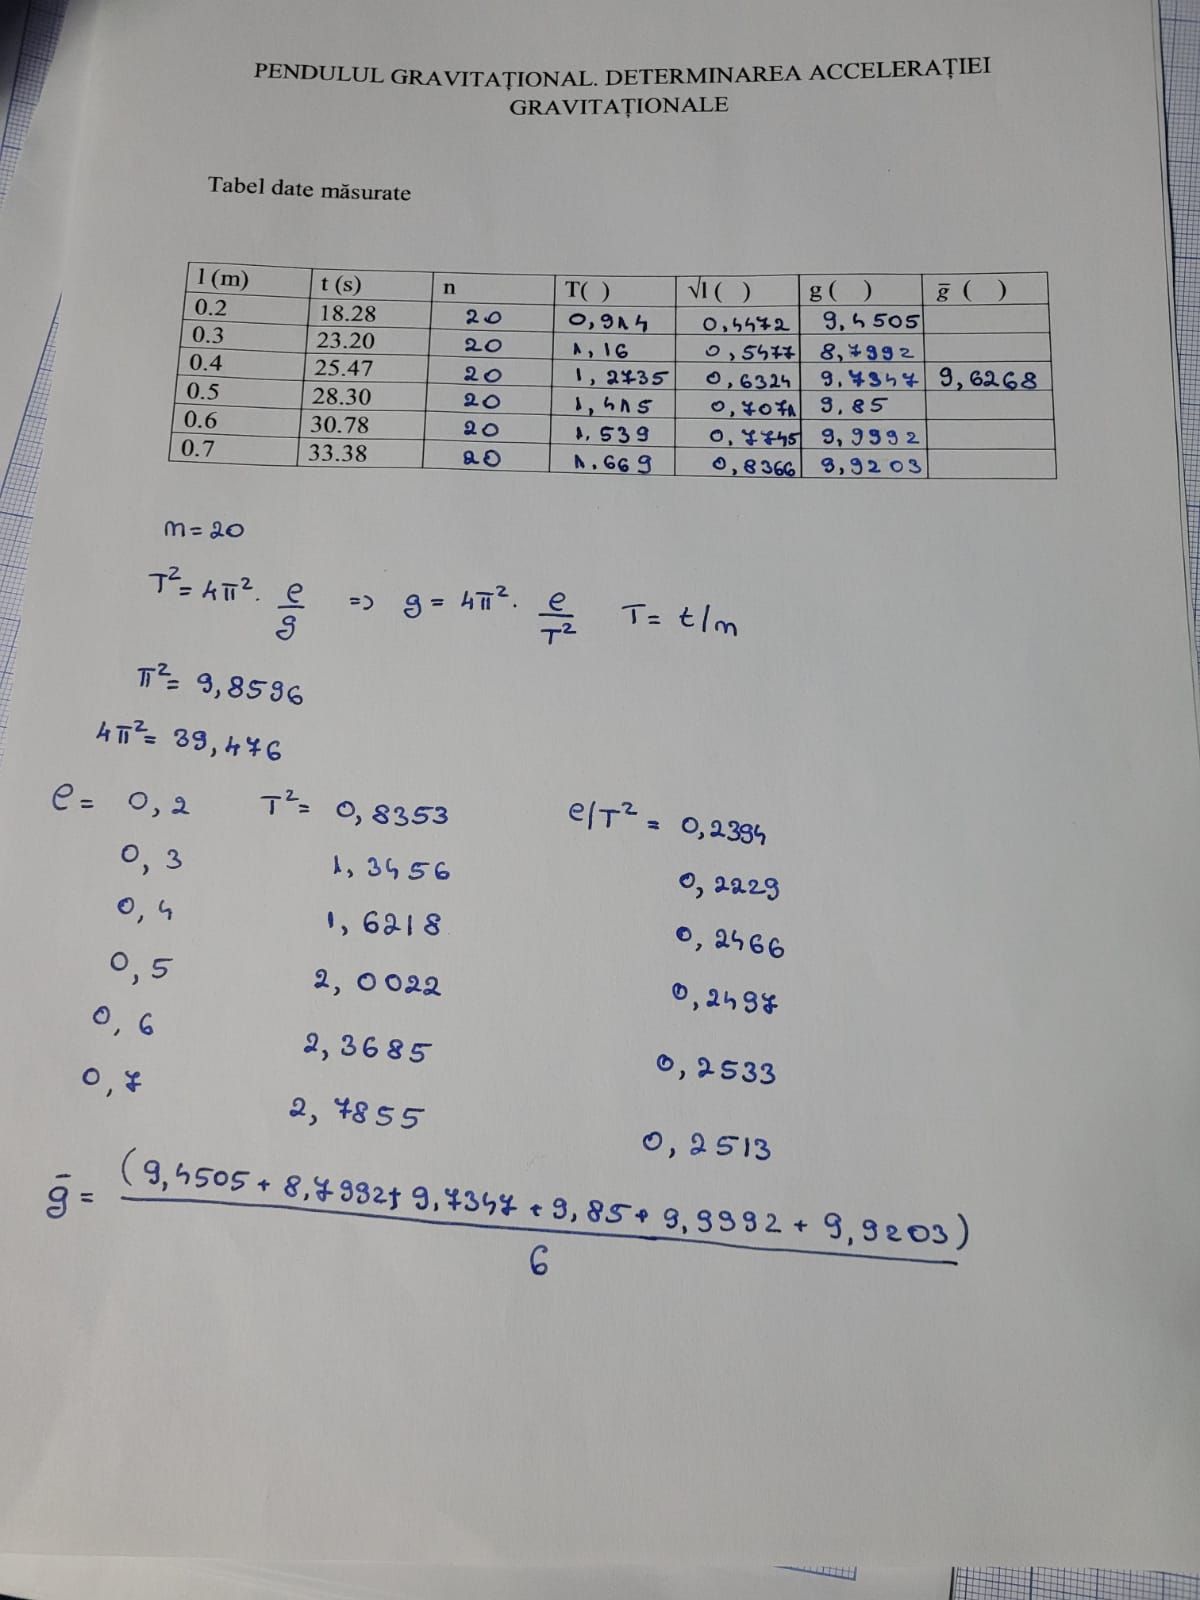 PENDULUL GRAVITAȚIONAL. DETERMINAREA ACCELERAȚIEI
GRAVITAȚIONALE
Tabel date măsurate
l (m) t (s) n T( ) √l ( ) g ( ) g̅ ( )
0.2 18.28 20 0,914 0,4472 9,4505
0.3 23.20 20 1,16 0,5477 8,7992
0.4 25.47 20 1,2735 0,6324 9,7347 9,6268
0.5 28.30 20 1,415 0,7071 9,85
0.6 30.78 20 1.539 0,7745 9,9992
0.7 33.38 20 1.669 0,8366 9,9203
n = 20
T² = 4π² · l/g => g = 4π² · l/T² T = t/n
π² = 9,8596
4π² = 39,476
l = 0,2 T² = 0,8353 l/T² = 0,2394
0,3 1,3456 0,2229
0,4 1,6218 0,2466
0,5 2,0022 0,2497
0,6 2,3685 0,2533
0,7 2,7855 0,2513
g̅ = (9,4505 + 8,7992 + 9,7347 + 9,85 + 9,9992 + 9,9203)
6